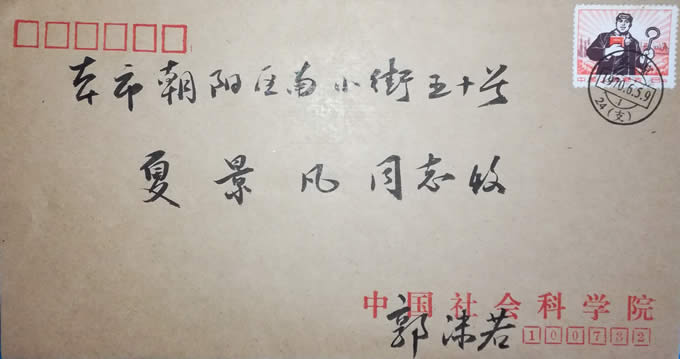 本市朝阳区南小街五十号
1970.6.5.9
1
24(支)
夏景凡同志收
中国社会科学院
郭沫若 100732